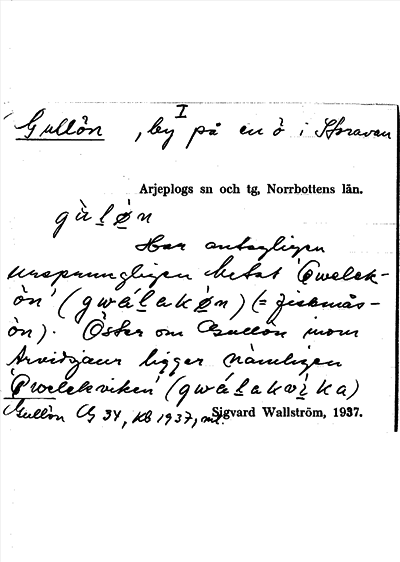 I
Gullön, by på en ö i Storavan
Arjeplogs sn och tg, Norrbottens län.
gù̀lø̣n
Har antagligen
ursprungligen hetat 'Gwelek-
ön' (gwálakøn) (= fiskmås-
ön). Öster om Gullön inom
Arvidsjaur ligger nämligen
'Gwelekviken' (gwálakvìka)
Gullön G 34, Kb 1937, ml.
Sigvard Wallström, 1937.